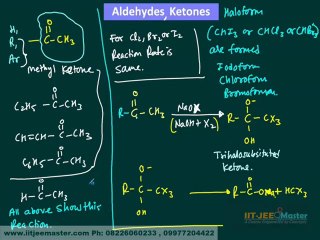 Aldehydes, Ketones
H,
R,
Ar
O
C-CH3
methyl Ketone
O
C2H5 - C - CH3
O
CH=CH - C - CH3
O
C6H5 - C - CH3
O
H - C - CH3
All above show this
Reaction.
For Cl2, Br2 or I2
Reaction Rate is
same.
O
R-C-CH3
NaOX
(NaOH + X2)
O-
R - C - CX3
OH
Trihalosubstituted
Ketone.
O-
R - C - CX3
OH
O
R-C-ONa + HCX3
Haloform
(CHI3 or CHCl3 or CHBr3)
are formed
Iodoform
Chloroform
Bromoform
IIT-JEE Master
www.iitjeemaster.com Ph: 08226060233 , 09977204422